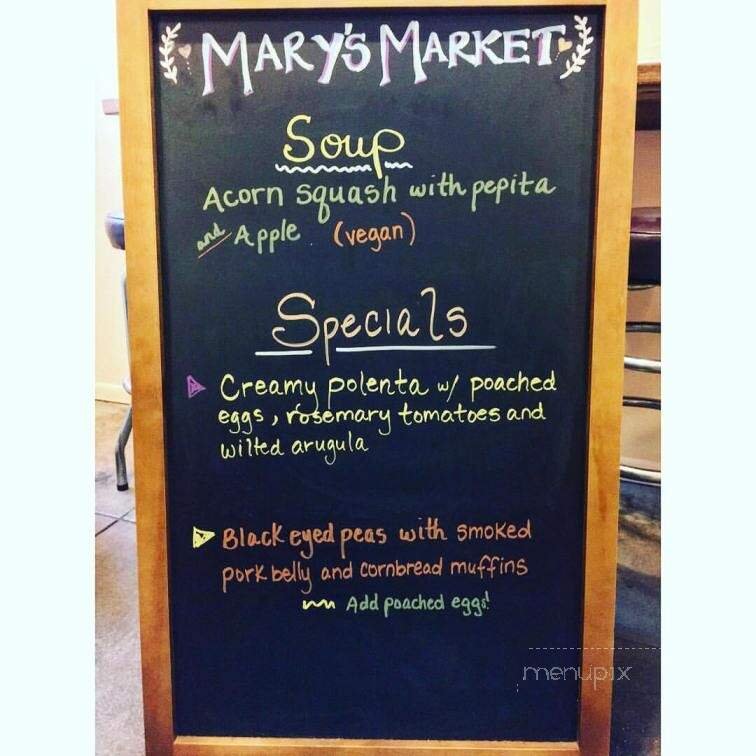 MARY'S MARKET
Soup
Acorn squash with pepita
and Apple (vegan)
Specials
Creamy polenta w/ poached
eggs, rosemary tomatoes and
wilted arugula
Black eyed peas with smoked
pork belly and cornbread muffins
Add poached eggs!
menupix